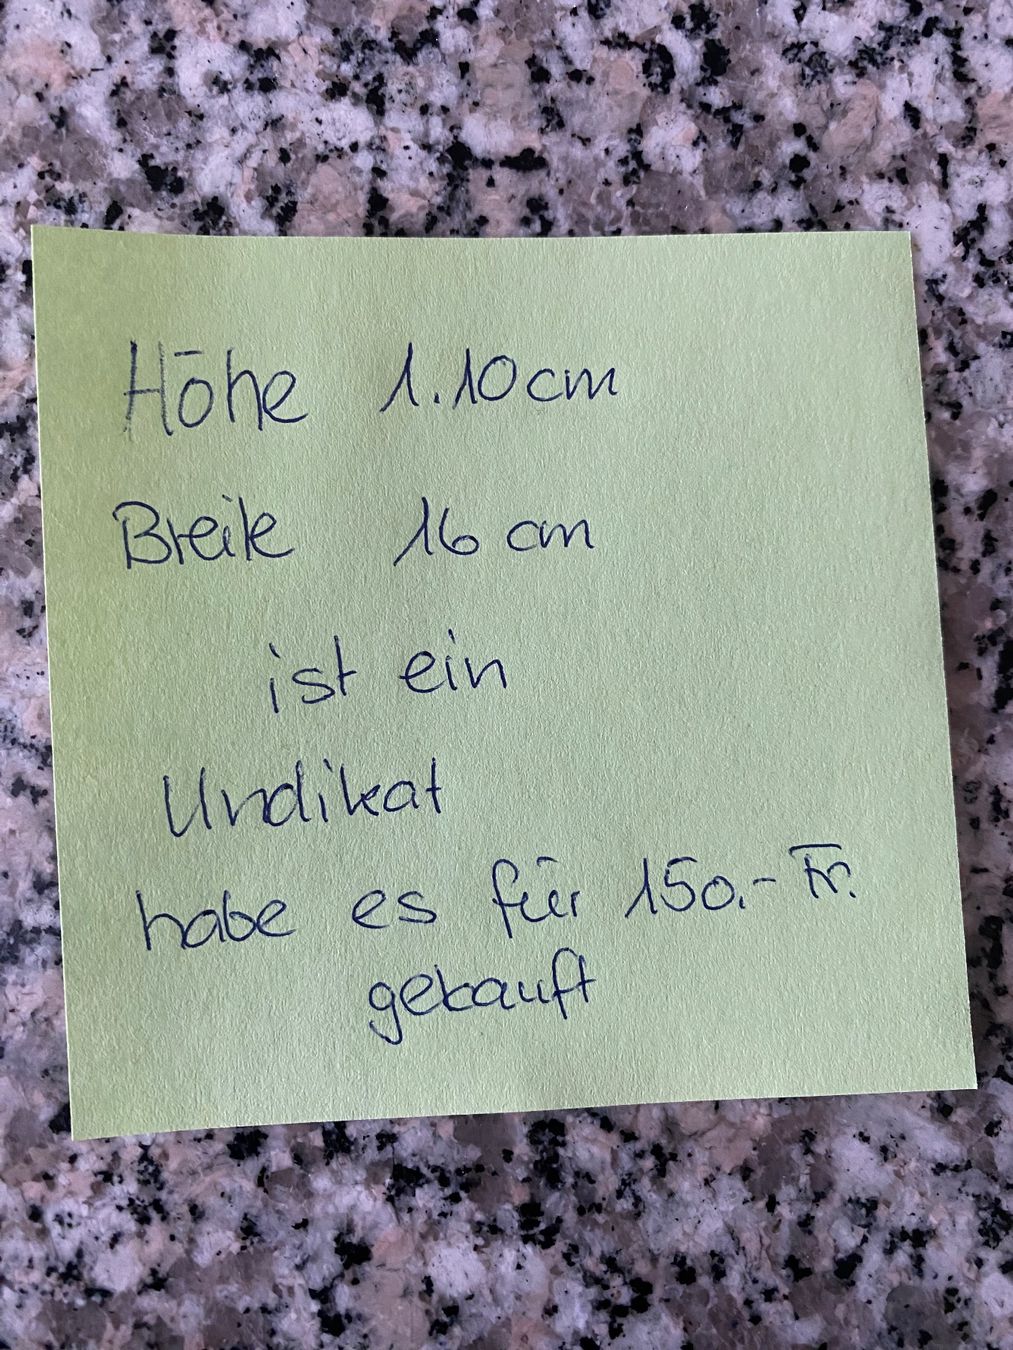 Höhe 1.10cm
Breite 16 cm
ist ein
Undikat
habe es für 150.- Fr.
gekauft